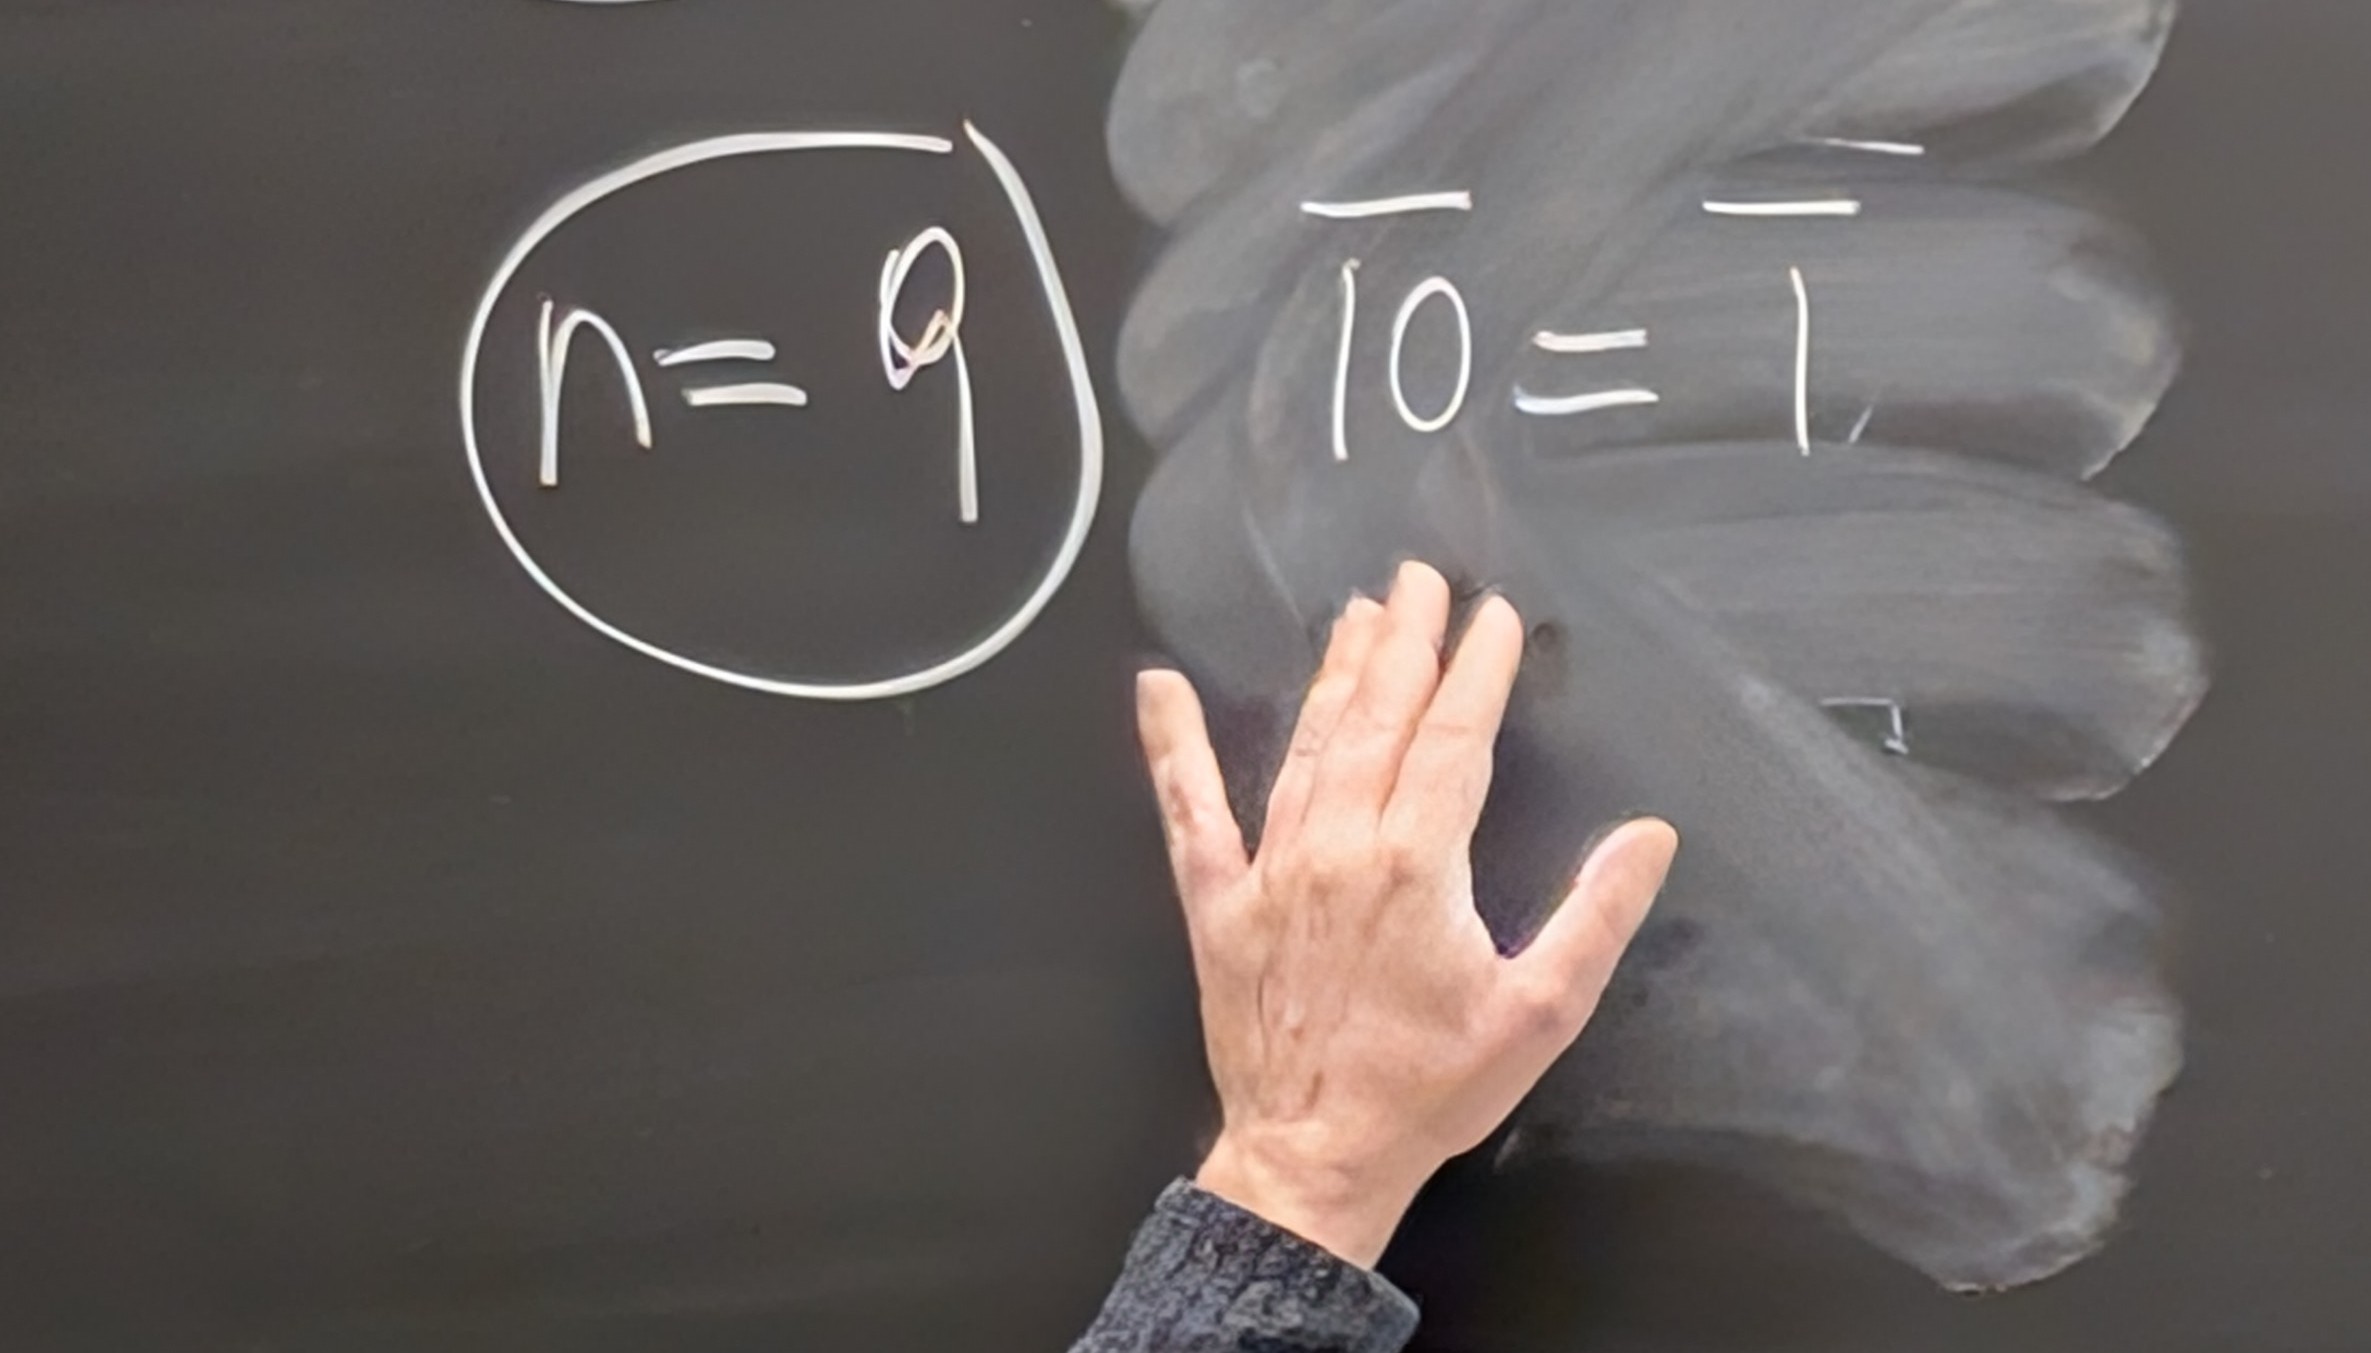 n = 9
1̅0̅ = 1̅